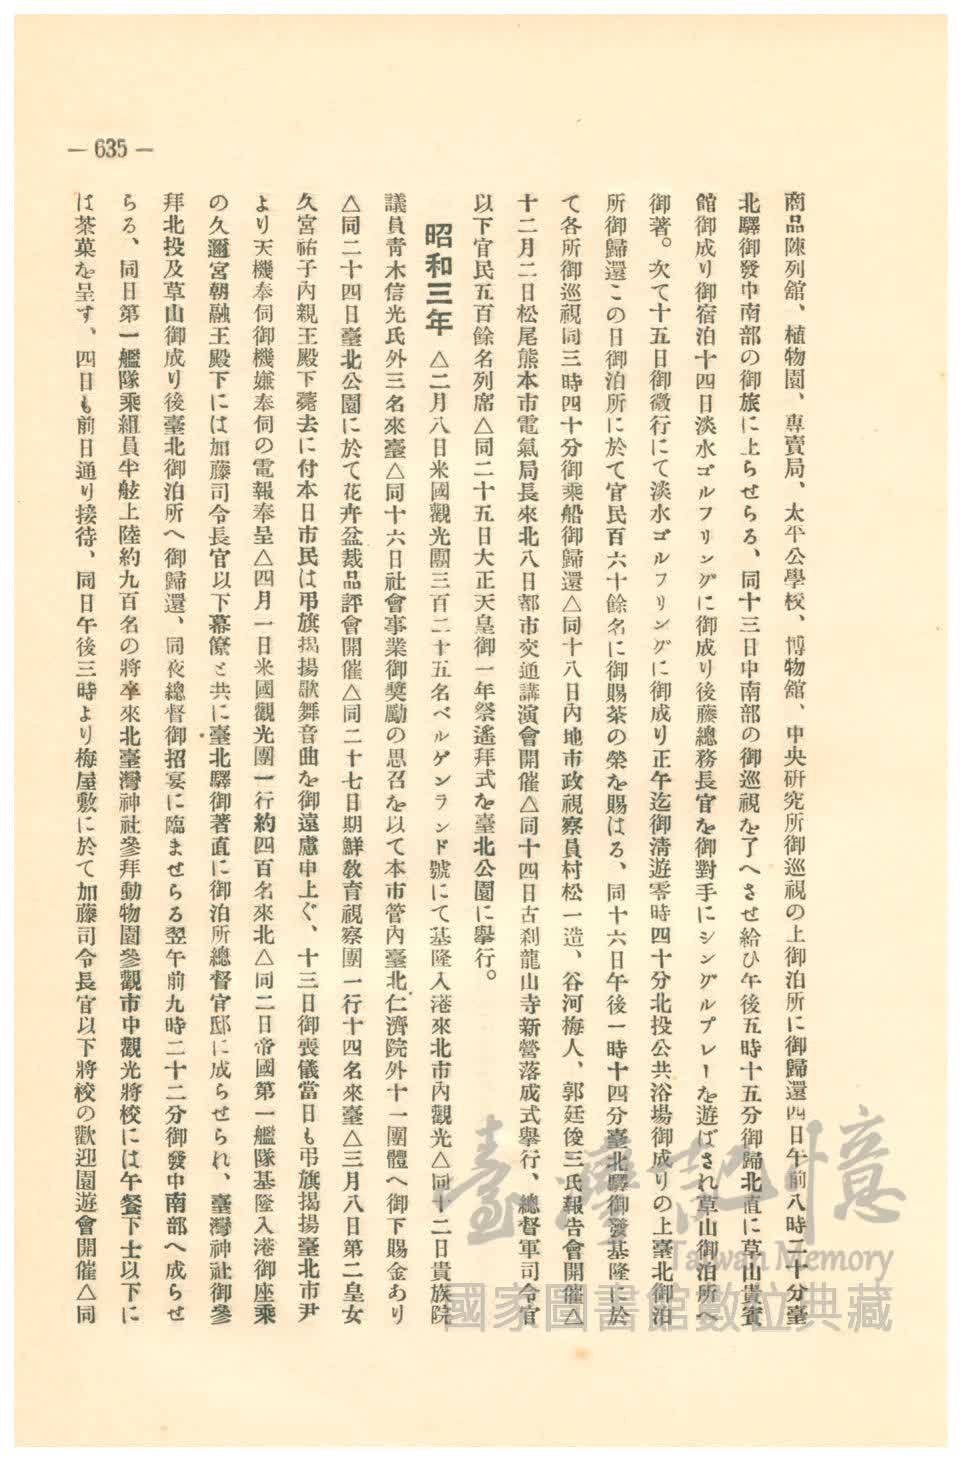 — 635 —
商品陳列館、植物園、專賣局、太平公學校、博物館、中央研究所御巡視の上御泊所に御歸還四日午前八時二十分臺
北驛御發中南部の御旅に上らせらる、同十三日中南部の御巡視を了へさせ給ひ午後五時十五分御歸北直に草山貴賓
館御成り御宿泊十四日淡水ゴルフリンググに御成り後藤總務長官を御對手にシングルプレーを遊ばされ草山御泊所へ
御著。次て十五日御微行にて淡水ゴルフリングに御成り正午迄御清遊零時四十分北投公共浴場御成りの上臺北御泊
所御歸還この日御泊所に於て官民百六十餘名に御賜茶の榮を賜はる、同十六日午後一時十四分臺北驛御發基隆に於
て各所御巡視同三時四十分御乘船御歸還△同十八日內地市政視察員村松一造、谷河梅人、郭廷俊三氏報告會開催△
十二月二日松尾熊本市電氣局長來北八日都市交通講演會開催△同十四日古刹龍山寺新營落成式擧行、總督軍司令官
以下官民五百餘名列席△同二十五日大正天皇御一年祭遙拜式を臺北公園に擧行。
昭和三年 △二月八日米國觀光團三百二十五名ベルゲンランド號にて基隆入港來北市內觀光△同十二日貴族院
議員靑木信光氏外三名來臺△同十六日社會事業御獎勵の思召を以て本市管內臺北仁濟院外十一團體へ御下賜金あり
△同二十四日臺北公園に於て花卉盆裁品評會開催△同二十七日期鮮敎育視察團一行十四名來臺△三月八日第二皇女
久宮祐子內親王殿下薨去に付本日市民は弔旗揭揚歌舞音曲を御遠慮申上ぐ、十三日御喪儀當日も弔旗揭揚臺北市尹
より天機奉伺御機嫌奉伺の電報奉呈△四月一日米國觀光團一行約四百名來北△同二日帝國第一艦隊基隆入港御座乘
の久邇宮朝融王殿下には加藤司令長官以下幕僚と共に臺北驛御著直に御泊所總督官邸に成らせられ、臺灣神社御參
拜北投及草山御成り後臺北御泊所へ御歸還、同夜總督御招宴に臨ませらる翌午前九時二十二分御發中南部へ成らせ
らる、同日第一艦隊乘組員半舷上陸約九百名の將卒來北臺灣神社參拜動物園參觀市中觀光將校には午餐下士以下に
は茶菓を呈す、四日も前日通り接待、同日午後三時より梅屋敷に於て加藤司令長官以下將校の歡迎園遊會開催△同
臺灣記憶
Taiwan Memory
國家圖書館數位典藏